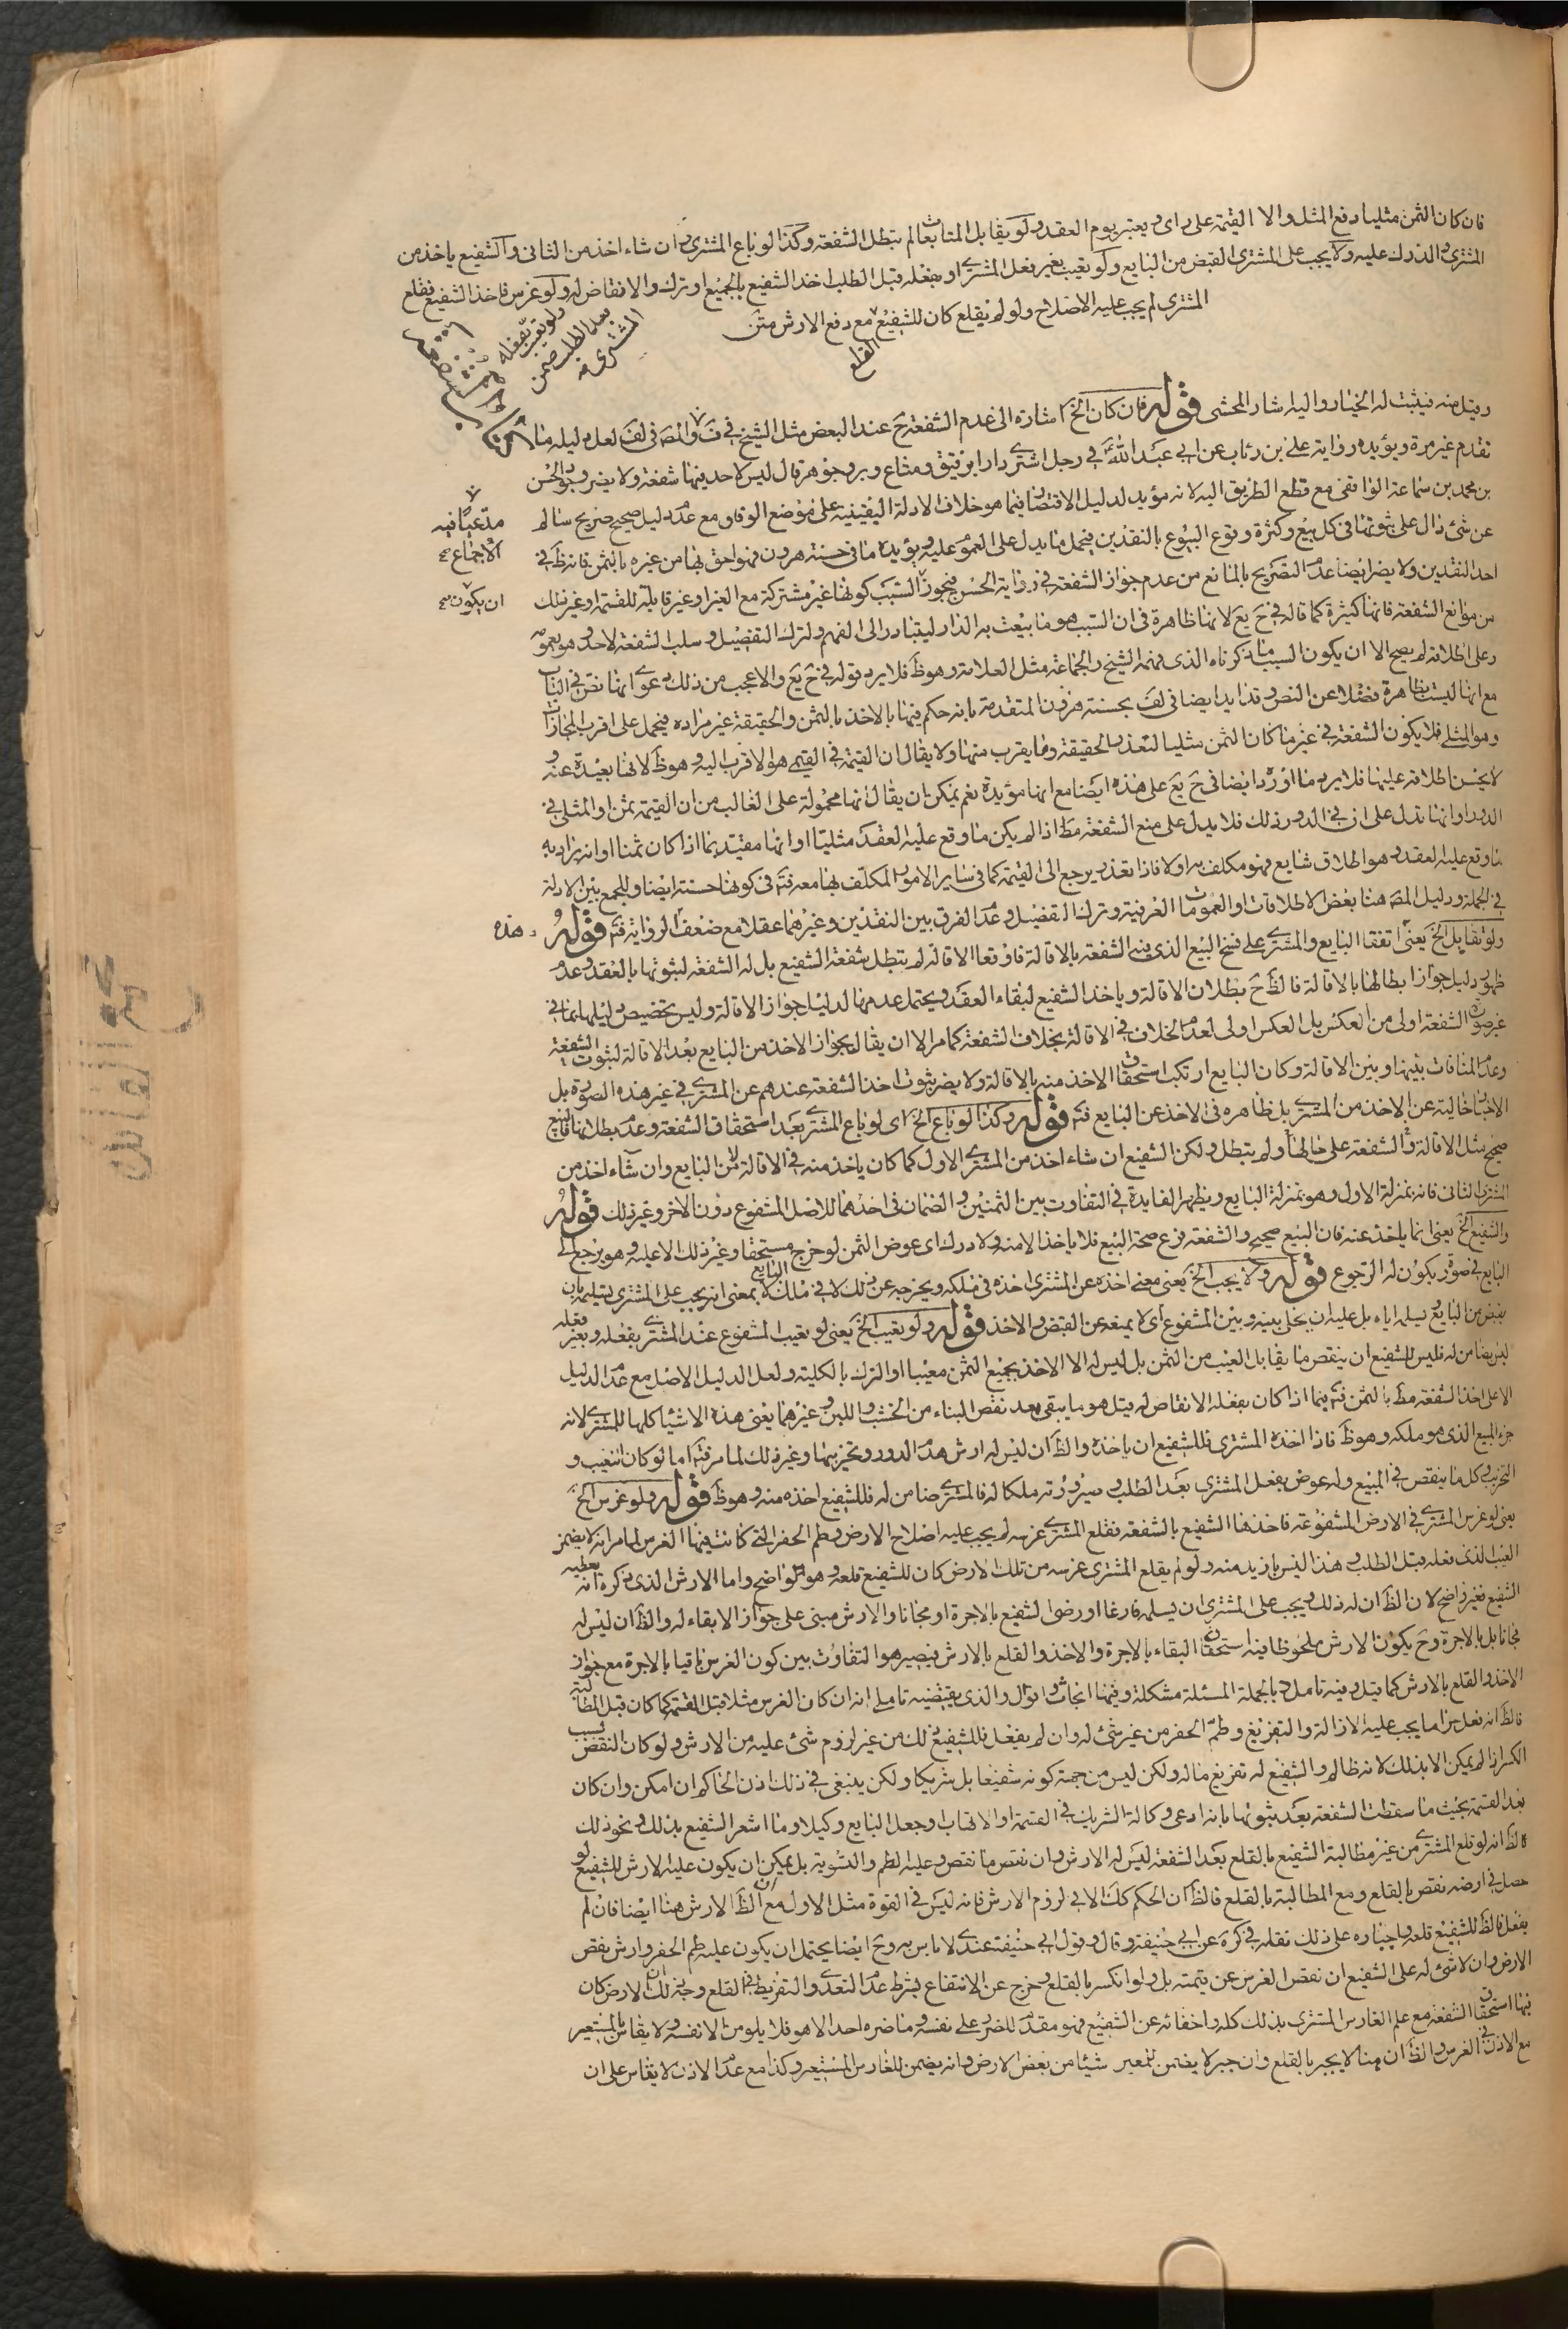 فان كان الثمن مثليا دفع المثل والا القيمة على راى ويعتبر يوم العقد ولو تقابل المتابعان لم تبطل الشفعة وكذا لو باع المشترى وان شاء اخذ من الثانى والشفيع ياخذ من
المشترى والدرك عليه ولا يجب على المشترى القبض من البايع ولو تعيب بغير فعل المشترى او بفعله قبل الطلب اخذ الشفيع بالجميع او ترك والانقاض له ولو غرس فاخذ الشفيع فقلع
المشترى لم يجب عليه الاصلاح ولو لم يقلع كان للشفيع القلع مع دفع الارش متن
ولو تعيب بفعله
بعد الطلب ضمن
المشترى
وقيل منه فيثبت له الخيار واليه اشار المحشى قوله فان كان الخ اشارة الى عدم الشفعة ح عند البعض مثل الشيخ فى ف والمصه فى لف لعل دليله ما
تقدم غير مرة ويؤيده رواية على بن رئاب عن ابى عبد الله فى رجل اشترى دارا برقيق ومتاع وبز وجوهر قال ليس لاحد فيها شفعة ولا يضر وجود الحسن
بن محمد بن سماعة الواقفى مع قطع الطريق اليه لانه مؤيد لدليل الاقتصار فيما هو خلاف الادلة اليقينيه على موضع الوفاق مع عدم دليل صحيح صريح سالم
عن شئ دال على ثبوتها فى كل بيع وكثرة وقوع البيوع بالنقدين فيحمل ما يدل على العموم عليه ويؤيده ما فى حسنة هرون فهو احق بها من غيره بالثمن فانه ظ فى
مدعيا فيه
الاجماع
احد النقدين ولا يضر ايضا عدم التصريح بالمانع من عدم جواز الشفعة فى رواية الحسن فيجوز السبب كونها غير مشتركة مع الغير او غير قابلة للقسمة او غير ذلك
ان يكون
من موانع الشفعة فانها كثيرة كما قاله فى ح يع لانها ظاهرة فى ان السبب هو ما بيعت به الدار ليتبادر الى الفهم ولترك التفصيل وسلب الشفعة لاحد وهو بعمومه
وعلى اطلاقه لم يصح الا ان يكون السبب ما ذكرناه الذى فهمه الشيخ والجماعة مثل العلامة وهو ظ فلا يرد قوله فى ح يع والاعجب من ذلك دعوى انها نص فى الباب
مع انها ليست بظاهرة فضلا عن النص وقد ايد ايضا فى لف بحسنة هرون المتقدمة بانه حكم فيها بالاخذ بالثمن والحقيقة غير مرادة فيحمل على اقرب المجازات
وهو المثلى فلا يكون الشفعة فى غير ما كان الثمن مثليا لتعذر الحقيقة وما يقرب منها ولا يقال ان القيمة فى القيمى هو الاقرب اليه وهو ظ لانها بعيدة عنه
لا يحسن اطلاقه عليها فلا يرد ما اورد ايضا فى ح يع على هذه ايضا مع انها مؤيدة نعم يمكن ان يقال انها محمولة على الغالب من ان القيمة ثمن او المثلى فى
الدور او انها تدل على ان فى الدور ذلك فلا يدل على منع الشفعة مط اذا لم يكن ما وقع عليه العقد مثليا او انها مقيد بما اذا كان ثمنا او انه يراد به
ما وقع عليه العقد وهو اطلاق شايع فهو مكلف به اولا فاذا تعذر يرجع الى القيمة كما فى ساير الامور المكلف بها معه فتم فى كونها حسنة ايضا وللجمع بين الادلة
فى الجملة ودليل المصه هنا بعض الاطلاقات والعمومات العرفية وترك التفصيل وعدم الفرق بين النقدين وغيرهما عقلا مع ضعف الرواية فتم قوله
هذه
ولو تقابل الخ يعنى اتفقا البايع والمشترى على فسخ البيع الذى فيه الشفعة بالاقالة فاوقعا الاقالة لم يتبطل شفعة الشفيع بل له الشفعة لثبوتها بالعقد وعدم
ظهور دليل جواز ابطالها بالاقالة فالظ ح بطلان الاقالة وياخذ الشفيع لبقاء العقد ويحتمل عدمها لدليل جواز الاقالة وليس تخصيص دليلها بما فى
غير صورة الشفعة اولى من العكس بل العكس اولى لعدم الخلاف فى الاقالة بخلاف الشفعة كما مر الا ان يقال بجواز الاخذ من البايع بعد الاقالة لثبوت الشفعة
وعدم المنافات بينها وبين الاقالة وكان البايع ارتكب استحقاق الاخذ منه بالاقالة ولا يضر ثبوت اخذ الشفعة عندهم عن المشترى فى غير هذه الصورة بل
الاخبار خالية عن الاخذ من المشترى بل ظاهره فى الاخذ عن البايع فتم قوله وكذا لو باع الخ اى لو باع المشترى بعد استحقاق الشفعة وعدم بطلانها فالبيع
صحيح مثل الاقالة والشفعة على حالها ولم يتبطل ولكن الشفيع ان شاء اخذ من المشترى الاول كما كان ياخذ منه فى الاقالة لا من البايع وان شاء اخذ من
المشترى الثانى فانه بمنزلة الاول وهو بمنزلة البايع ويظهر الفايدة فى التفاوت بين الثمنين والضمان فى احدهما للاصل المشفوع دون الاخر وغير ذلك قوله
والشفيع الخ يعنى انما ياخذ عنه فان البيع صحيح والشفعة فرع صحة البيع فلا ياخذ الا منه ولا درك اى عوض الثمن لو خرج مستحقا وغير ذلك الا عليه وهو يرجع الى
البايع فى صورة يكون له الرجوع قوله ولا يجب الخ يعنى معنى اخذه عن المشترى اخذه فى ملكه ويخرجه عن ذلك لا فى ملك البايع لا بمعنى انه يجب على المشترى تسليمه بان
يقبض من البايع ويسلمه اياه بل عليه ان يخلى بينه وبين المشفوع اى لا يمنعه عن القبض والاخذ قوله ولو تعيب الخ يعنى لو تعيب المشفوع عند المشترى بفعله وبغير فعله
ليس بضامن له فليس للشفيع ان ينقص ما يقابل العيب من الثمن بل ليس له الا الاخذ بجميع الثمن معيبا او الترك بالكلية ولعل الدليل الاصل مع عدم الدليل
الا على اخذ الشفعة مط بالثمن فتم فيما اذا كان بفعله الانقاض له قيل هو ما يبقى بعد نقص البناء من الخشب واللبن وغيرهما يعنى هذه الاشيا كلها للمشترى لانه
جزء المبيع الذى هو ملكه وهو ظ فاذا اخذه المشترى فللشفيع ان ياخذه والظ ان ليس له ارش هدم الدور وتخريبها وغير ذلك لما مر فتم اما لو كان التعيب و
التخريب وكل ما ينقص فى المبيع وله عوض بفعل المشترى بعد الطلب وصيرورته ملكا له فالمشترى ضامن له فللشفيع اخذه منه وهو ظ قوله ولو غرس الخ
يعنى لو غرس المشترى فى الارض المشفوعة فاخذها الشفيع بالشفعة فقلع المشترى غرسه لم يجب عليه اصلاح الارض وطم الحفر التى كانت فيها الغرس لما مر انه لا يضمن
العيب الذى فعله قبل الطلب وهذا ليس بازيد منه ولو لم يقلع المشترى غرسه من تلك الارض كان للشفيع قلعه وهو واضح واما الارش الذى ذكره انه يعطيه
الشفيع فغير واضح لان الظ ان له ذلك ويجب على المشترى ان يسلمه فارغا او رضى الشفيع بالاجرة او مجانا والارش مبنى على جواز الابقاء له والظ ان ليس له
مجانا بل بالاجرة وح يكون الارش ملحوظا فيه استحقاق البقاء بالاجرة والاخذ والقلع بالارش فيصير هو التفاوت بين كون الغرس باقيا بالاجرة مع جواز
الاخذ والقلع بالارش كما قيل وفيه تامل وبالجملة المسئلة مشكلة وفيها ابحاث واقوال والذى يقتضيه تاملى انه ان كان الغرس مثلا قبل القسمة كما كان قبل المطالبة
فالظ انه فعل حراما يجب عليه الازالة والتفريغ وطم الحفر من غير شئ له وان لم يفعل فللشفيع ذلك من غير لزوم شئ عليه من الارش ولو كان النقص بسبب
الكسر اذا لم يمكن الا بذلك لانه ظالم والشفيع له تفريغ ماله ولكن ليس من جهة كونه شفيعا بل شريكا ولكن ينبغى فى ذلك اذن الحاكم ان امكن وان كان
بعد القسمة بحيث ما سقطت الشفعة بعد ثبوتها بانه ادعى وكالة الشريك فى القسمة او الاتهاب وجعل البايع وكيلا وما اشعر الشفيع بذلك ونحو ذلك
فالظ انه لو قلع المشترى من غير مطالبة الشفيع بالقلع بعد الشفعة ليس له الارش وان نقص ما نقص وعليه الطم والتسوية بل يمكن ان يكون عليه الارش للشفيع لو
حصل فى ارضه نقص بالقلع ومع المطالبة بالقلع فالظ ان الحكم كك الا فى لزوم الارش فانه ليس فى القوة مثل الاول مع ان الظ الارش هنا ايضا فان لم
يفعل فالظ للشفيع قلعه واجباره على ذلك نقله فى كره عن ابى حنيفة وقال وقول ابى حنيفة عندى لا باس به وح ايضا يحتمل ان يكون عليه طم الحفر وارش نقص
الارض وان لا شئ له على الشفيع ان نقص الغرس عن قيمته بل ولو انكسر بالقلع وخرج عن الانتفاع بشرط عدم التعدى والتفريط فى القلع وجه ذلك ان الارض كان
فيها استحقاق الشفعة مع علم الغارس المشترى بذلك كله واخفائه عن الشفيع فهو مقدم للضرر على نفسه وما ضره احد الا هو فلا يلومن الا نفسه ولا يقاس بالمستعير
مع الاذن فى الغرس والظ ان هنا لا يجبر بالقلع وان جبر لا يضمن للمعير شيئا من نقص الارض وانه يضمن للغارس المستعير وكذا مع عدم الاذن لا يقاس على ان